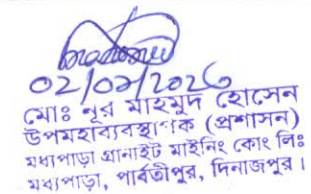 02/02/2026
মোঃ নূর মাহমুদ হোসেন
উপমহাব্যবস্থাপক (প্রশাসন)
মধ্যপাড়া গ্রানাইট মাইনিং কোং লিঃ
মধ্যপাড়া, পার্বতীপুর, দিনাজপুর।